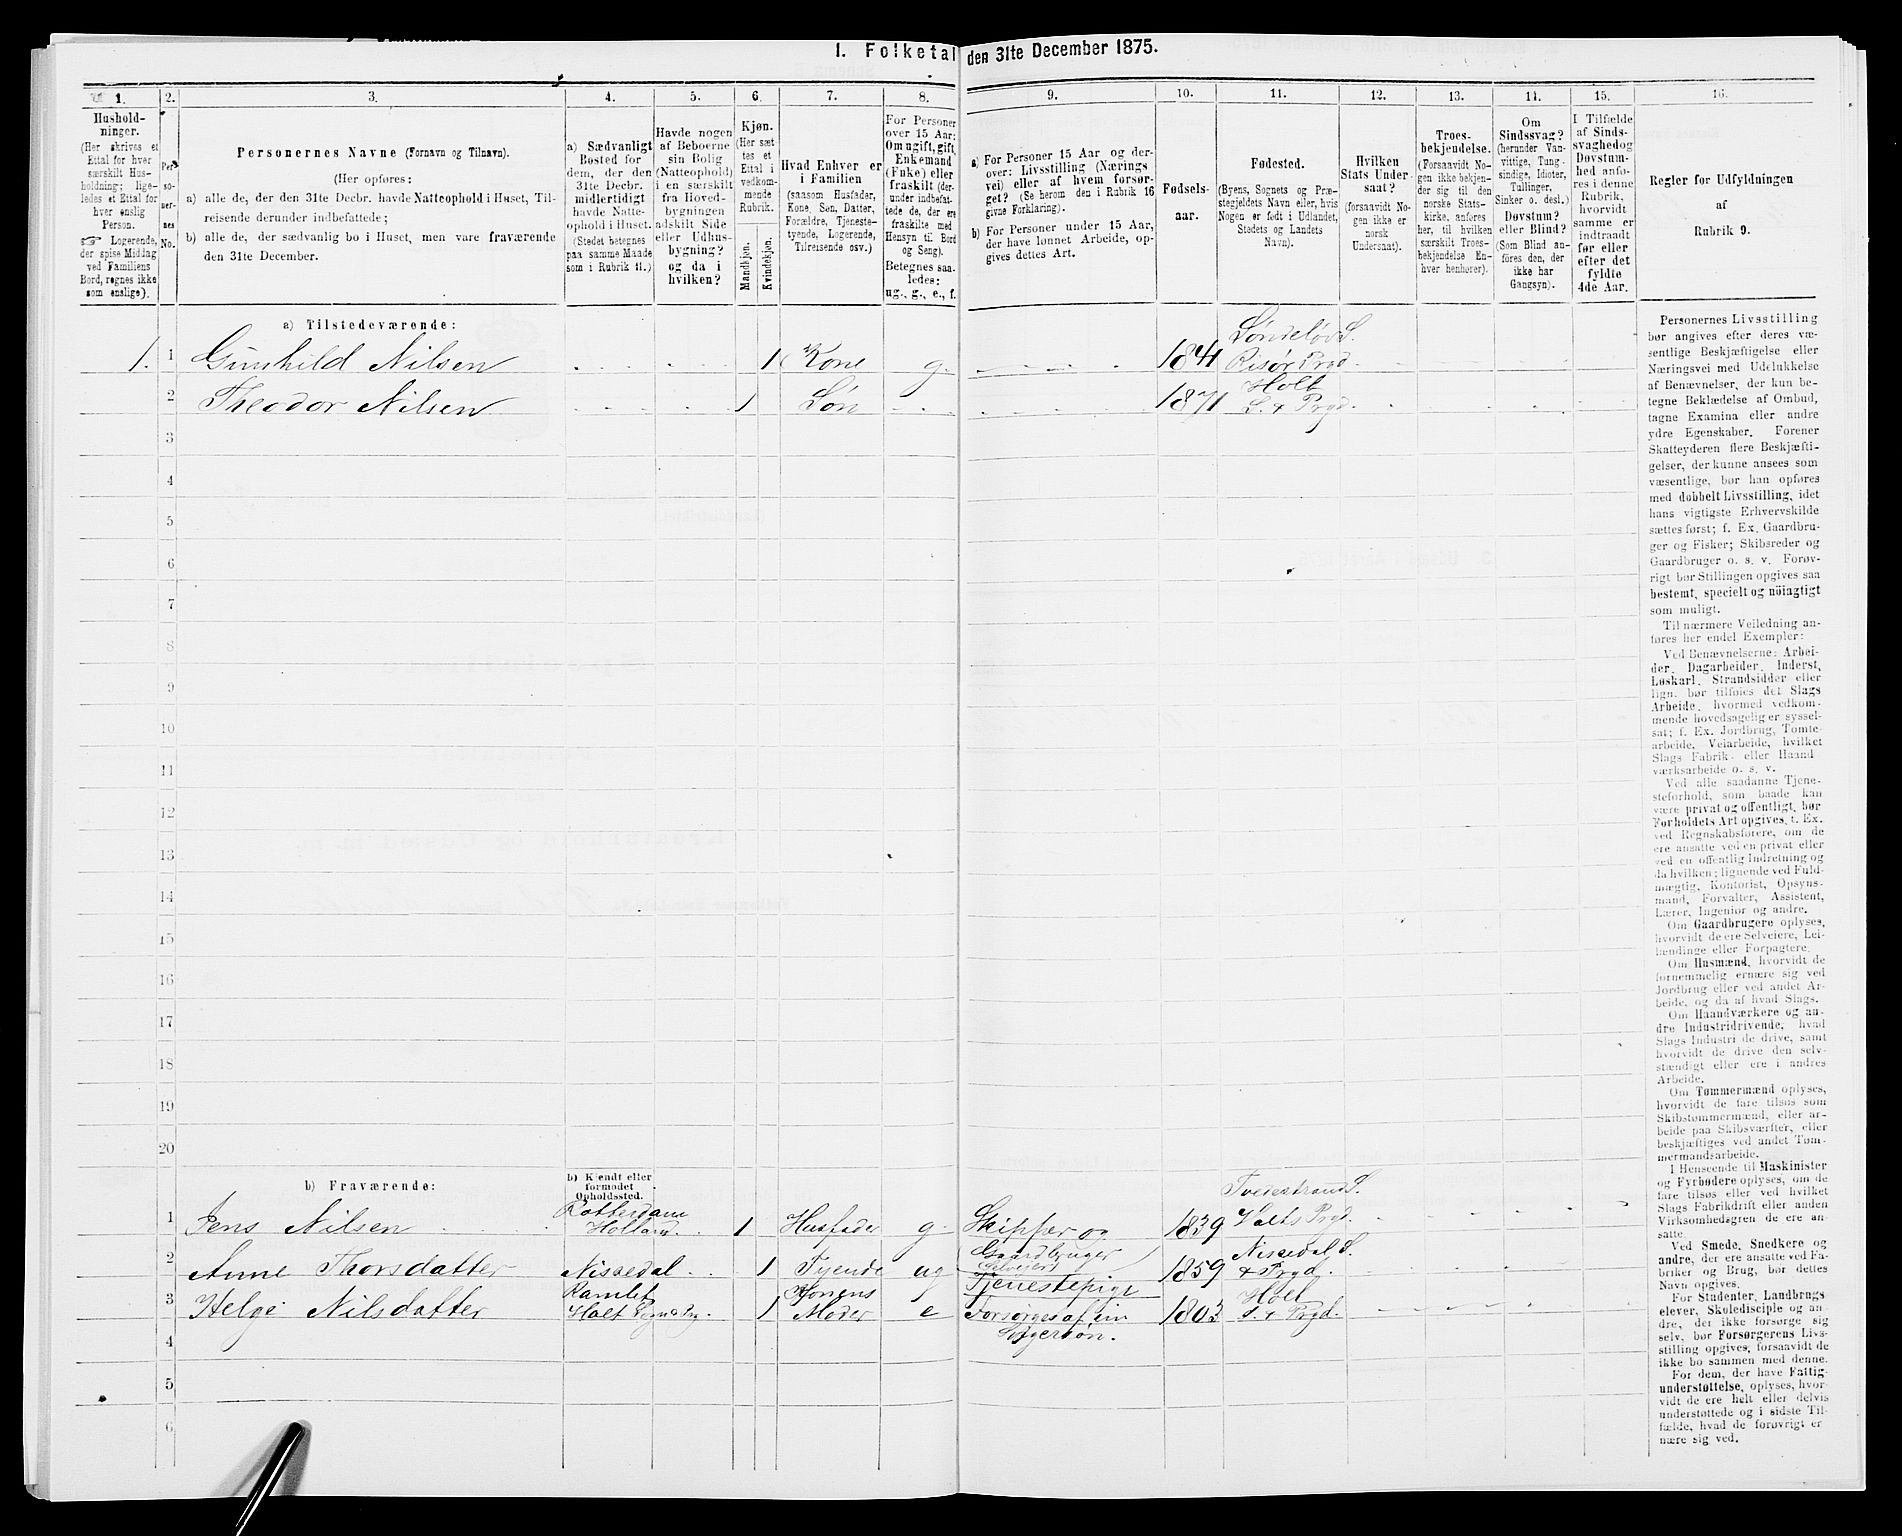 1. Folketal den 31te December 1875.
1.
Hushold-
ninger.
(Her skrives et
Ettal for hver
særskilt Hus-
holdning; lige-
ledes et Ettal for
hver enslig
Person.
☞ Logerende,
der spise Middag
ved Familiens
Bord, regnes ikke
som enslige).
2.
Per-
so-
ner-
nes
No.
3.
Personernes Navne (Fornavn og Tilnavn).
(Her opføres:
a) alle de, der den 31te Decbr. havde Natteophold i Huset, Til-
reisende derunder indbefattede;
b) alle de, der sædvanlig bo i Huset, men vare fraværende
den 31te December.
4.
a) Sædvanligt
Bosted for
dem, der den
31te Decbr.
midlertidigt
havde Natte-
ophold i Huset.
(Stedet betegnes
paa samme Maade
som i Rubrik 11.)
5.
Havde nogen
af Beboerne
sin Bolig
(Natteophold)
i en særskilt
fra Hoved-
bygningen
adskilt Side-
eller Udhus-
bygning?
og da i
hvilken?
6.
Kjøn.
(Her sæt-
tes et
Ettal i
vedkom-
mende
Rubrik.
Mandkjøn.
Kvindekjøn.
7.
Hvad Enhver er
i Familien
(saasom Husfader,
Kone, Søn, Datter,
Forældre, Tjeneste-
tyende, Logerende,
Tilreisende osv.)
8.
For Personer
over 15 Aar:
Om ugift, gift,
Enkemand
(Enke) eller
fraskilt (der-
under indbefat-
tede de, der ere
fraskilte med
Hensyn til Bord
og Seng).
Betegnes saa-
ledes:
ug., g., e., f.
9.
a) For Personer 15 Aar og der-
over: Livsstilling (Nærings-
vei) eller af hvem forsør-
get? (Se herom den i Rubrik 16
givne Forklaring).
b) For Personer under 15 Aar,
der have lønnet Arbeide, op-
gives dettes Art.
10.
Fødsels-
aar.
11.
Fødested.
(Byens, Sognets og Præ-
stegjeldets Navn eller, hvis
Nogen er født i Udlandet,
Stedets og Landets
Navn).
12.
Hvilken
Stats Under-
saat?
(forsaavidt No-
gen ikke er
norsk
Undersaat).
13.
Troes-
bekjendelse.
(Forsaavidt No-
gen ikke bekjen-
der sig til den
norske Stats-
kirke, anføres
her, til hvilken
særskilt Troes-
bekjendelse En-
hver henhører).
14.
Om
Sindssvag?
(herunder Van-
vittige, Tung-
sindige, Idioter,
Tullinger,
Sinker o. desl.)
Døvstum?
eller Blind?
(Som Blind an-
føres den, der
ikke har
Gangsyn).
15.
I Tilfælde
af Sinds-
svaghed og
Døvstum-
hed anfø-
res i denne
Rubrik,
hvorvidt
samme er
indtraadt
før eller
efter det
fyldte
4de Aar.
16.
Regler for Udfyldningen
af
Rubrik 9.
a) Tilstedeværende:
Søndeløv S.
1. 1 Gunhild Nilsen 1 Kone g. 1841 Risør Prgd.
Holt
2 Theodor Nilsen 1 Søn 1871 S. & Prgd.
3
4
5
6
7
8
9
10
11
12
13
14
15
16
17
18
19
20
b) Fraværende:
b) Kjendt eller
formodet
Opholdssted.
Rotterdam Tvedestrand S.
1 Jens Nilsen Holland. 1 Husfader g. Skipper og 1839 Holts Prgd.
Gaardbruger Nissedal S.
Selveier
2 Anne Thorsdatter Nissedal 1 Tyende ug Tjenestepige 1859 & Prgd.
Ramlet Konens Holt
3 Helge Nilsdatter Holt Sogn & Prg. 1 Moder e Forsørges af sin 1803 S. & Prgd.
4
5
6
Personernes Livsstilling
bør angives efter deres væ-
sentlige Beskjæftigelse eller
Næringsvei med Udelukkelse
af Benævnelser, der kun be-
tegne Beklædelse af Ombud,
tagne Examina eller andre
ydre Egenskaber. Forener
Skatteyderen flere Beskjæfti-
gelser, der kunne ansees som
væsentlige, bør han opføres
med dobbelt Livsstilling, idet
hans vigtigste Erhvervskilde
sættes først; f. Ex. Gaardbru-
ger og Fisker; Skibsreder og
Gaardbruger o. s. v. Forøv-
rigt bør Stillingen opgives saa
bestemt, specielt og nöiagtigt
som muligt.
Til nærmere Veiledning an-
føres her endel Exempler:
Ved Benævnelserne: Arbei-
der, Dagarbeider, Inderst,
Løskarl, Strandsidder eller
lign. bør tilføies det Slags
Arbeide, hvormed vedkom-
mende hovedsagelig er syssel-
sat; f. Ex. Jordbrug, Tomte-
arbeide, Veiarbeide, hvilket
Slags Fabrik- eller Haand-
værksarbeide o. s. v.
Ved alle saadanne Tjene-
steforhold, som baade kan
være privat og offentligt, bør
Forholdets Art opgives, t. Ex.
ved Regnskabsførere, om de
ere ansatte ved en privat eller
ved en offentlig Indretning og
da hvilken; lignende ved Fuld-
mægtig, Kontorist, Opsyns-
mand, Forvalter, Assistent,
Lærer, Ingeniør og andre.
Om Gaardbrugere oplyses,
hvorvidt de ere Selveiere, Lei-
lændinge eller Forpagtere.
Om Husmænd, hvorvidt de
fornemmelig ernære sig ved
Jordbrug eller ved andet Ar-
beide, og da af hvad Slags.
Om Haandværkere og an-
dre Industridrivende, hvad
Slags Industri de drive, samt
hvorvidt de drive den selv-
stændigt eller ere i andres
Arbeide.
Om Tømmermænd oplyses,
hvorvidt de fare tilsøs som
Skibstømmermænd, eller ar-
beide paa Skibsværfter, eller
beskjæftiges ved andet Tøm-
mermandsarbeide.
I Henseende til Maskinister
og Fyrbødere oplyses, om de
fare tilsøs eller ved hvilket
Slags Fabrikdrift eller anden
Virksomhedsgren de ere an-
satte.
Ved Smede, Snedkere og
andre, der ere ansatte ved Fa-
briker og Brug, bør dettes
Navn opgives.
For Studenter, Landbrugs-
elever, Skoledisciple og an-
dre, der ikke forsørge sig
selv, bør Forsørgerens Livs-
stilling opgives, forsaavidt de
ikke bo sammen med denne.
For dem, der have Fattig-
understøttelse, oplyses, hvor-
vidt de ere helt eller delvis
understøttede og i sidste Til-
fælde, hvad de forøvrigt er-
nære sig ved.